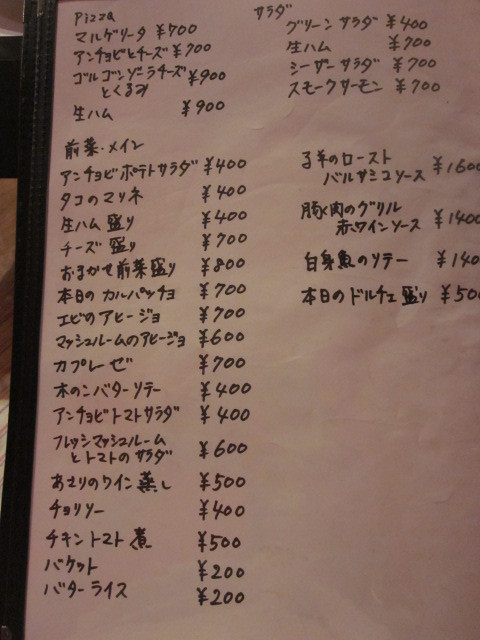 Pizza
マルゲリータ ¥700
アンチョビとチーズ ¥700
ゴルゴンゾーラチーズ
とくるみ ¥900
生ハム ¥900
サラダ
グリーンサラダ ¥400
生ハム ¥700
シーザーサラダ ¥700
スモークサーモン ¥700
前菜・メイン
アンチョビポテトサラダ ¥400
タコのマリネ ¥400
生ハム盛り ¥400
チーズ盛り ¥700
おまかせ前菜盛り ¥800
本日のカルパッチョ ¥700
エビのアヒージョ ¥700
マッシュルームのアヒージョ ¥600
カプレーゼ ¥700
木のこバターソテー ¥400
アンチョビトマトサラダ ¥400
フレッシュマッシュルーム
とトマトのサラダ ¥600
あさりのワイン蒸し ¥500
チョリソー ¥400
チキントマト煮 ¥500
バケット ¥200
バターライス ¥200
子羊のロースト
バルサミコソース ¥1600
豚肉のグリル
赤ワインソース ¥1400
白身魚のソテー ¥140
本日のドルチェ盛り ¥500